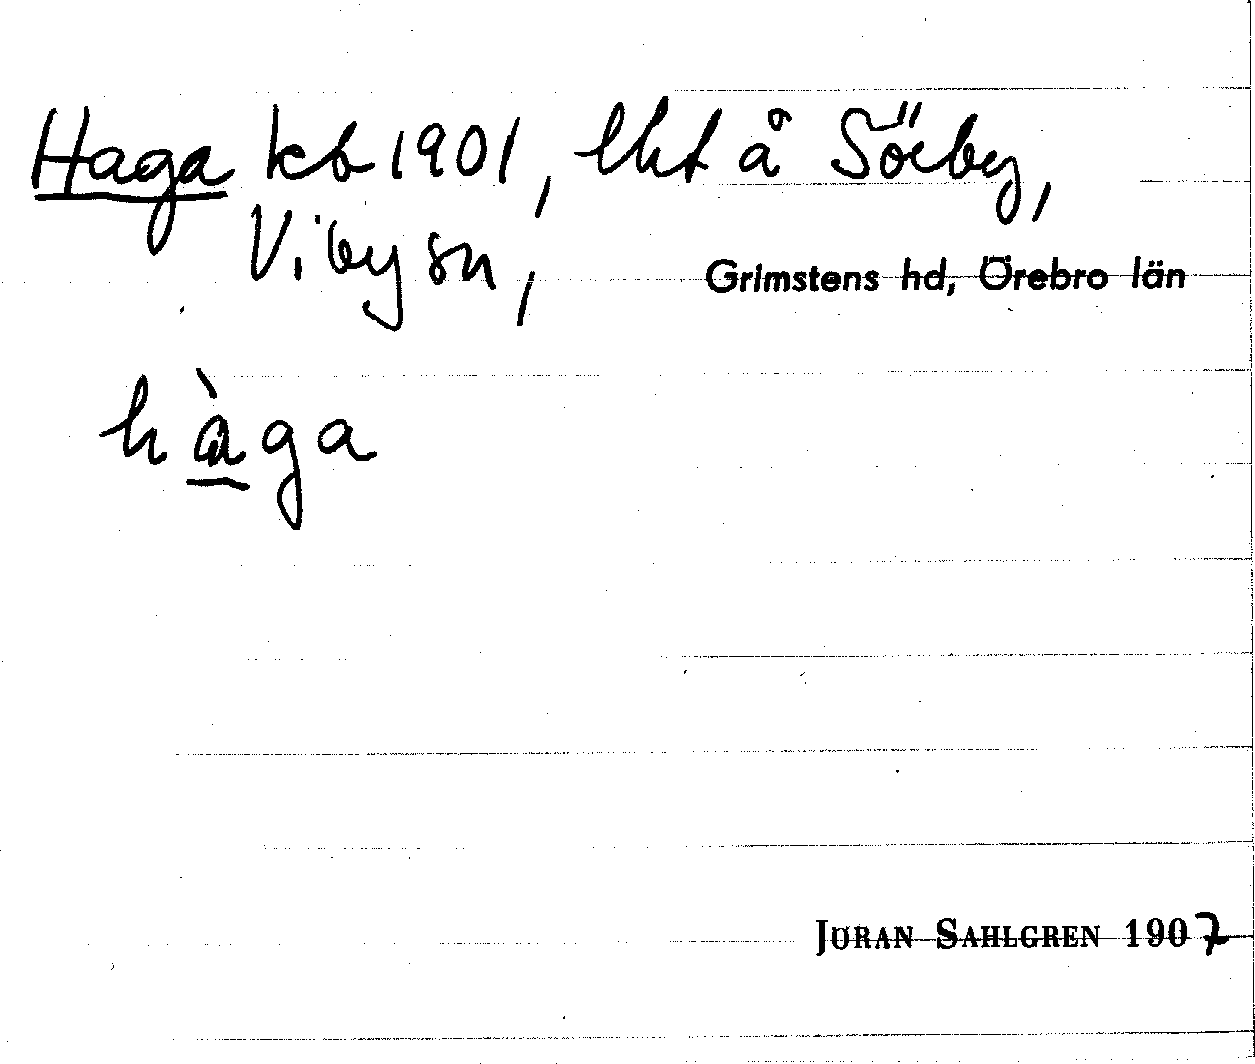 Haga kb 1901, lht å Sörby,
Viby sn, Grimstens hd, Örebro län
hàga
JÖRAN SAHLGREN 1907